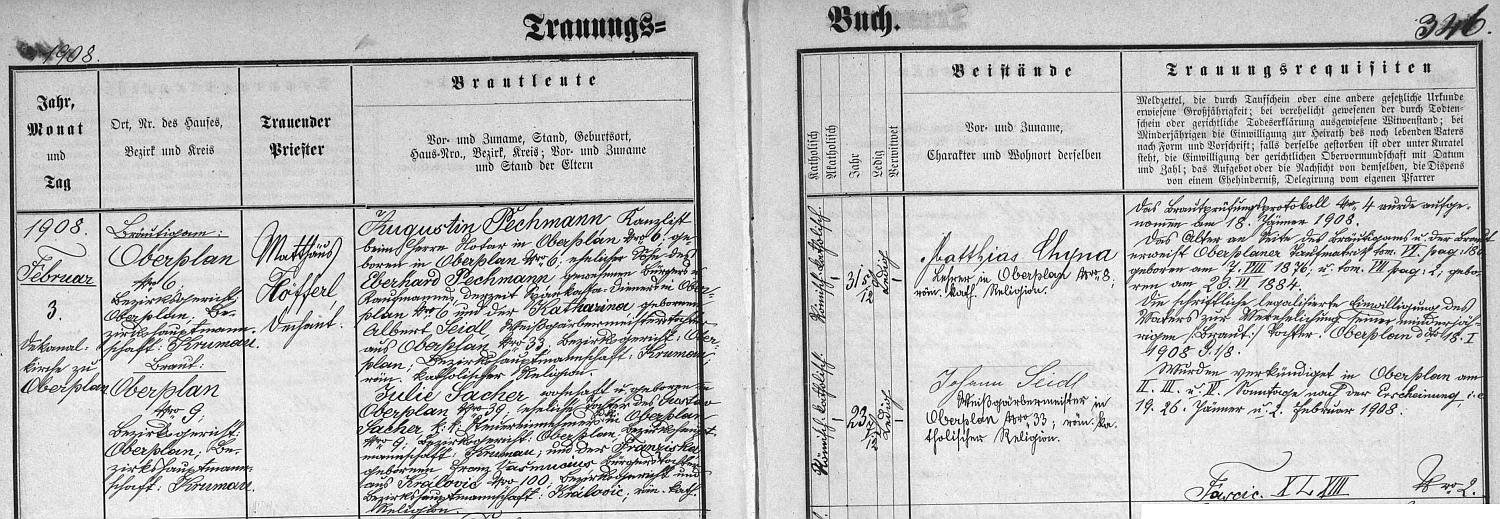 Trauungs=
Buch.
1908.
346.
Jahr,
Monat
und
Tag
Ort, Nr. des Hauses,
Bezirk und Kreis
Trauender
Priester
Brautleute
Vor- und Zuname, Stand, Geburtsort,
Haus-Nro., Bezirk, Kreis; Vor- und Zuname
und Stand der Eltern
Katholisch
Akatholisch
Jahr
Ledig
Verwitwet
Beistände
Vor- und Zuname,
Charakter und Wohnort derselben
Trauungsrequisiten
Meldzettel, die durch Taufschein oder eine andere gesetzliche Urkunde
erwiesene Großjährigkeit; bei verehelicht gewesenen der durch Todten-
schein oder gerichtliche Todeserklärung ausgewiesene Witwenstand; bei
Minderjährigen die Einwilligung zur Heirath des noch lebenden Vaters
nach Form und Vorschrift; falls derselbe gestorben ist oder unter Kuratel
steht, die Einwilligung der gerichtlichen Obervormundschaft mit Datum
und Zahl; das Aufgebot oder die Nachsicht von demselben, die Dispens
von einem Ehehinderniß, Delegirung vom eigenen Pfarrer
1908.
Februar
3.
Dekanal-
kirche zu
Oberplan
Bräutigam:
Oberplan
Nro 6,
Bezirksgericht
Oberplan, Be-
zirkshauptmann-
schaft: Krumau.
Braut:
Oberplan
Nro 9,
Bezirksgericht:
Oberplan, Be-
zirkshauptmann-
schaft: Krumau.
Matthäus
Höfferl
Dechant.
Augustin Pechmann, Kanzlist
beim Herrn Notar in Oberplan Nro 6, ge-
boren in Oberplan Nro 6, ehelicher Sohn des
Eberhard Pechmann, gewesenen Bürgers u.
Kaufmanns, derzeit Dieners in Ober-
plan Nro 6 und der Katharina, geborenen
Albert Seidl Weißgärbermeisterstochter
aus Oberplan Nro 33, Bezirksgericht: Ober-
plan, Bezirkshauptmannschaft: Krumau,
röm. katholischer Religion.
Julie Sacher, wohnhaft u. geboren in
Oberplan Nro 39, eheliche Tochter des Gustav
Sacher k. k. Steuereinnehmers in Oberplan
Nro 9, Bezirksgericht: Oberplan, Bezirkshaupt-
mannschaft: Krumau, und der Franziska
geborenen Franz Bürgerstochter
aus Kralovic Nro 100, Bezirksgericht und
Bezirkshauptmannschaft: Kralovic, röm. kath.
Religion.
Römisch-katholisch.
31 5/12
Ledig
Matthias Chyna
Lehrer in Oberplan Nro 8;
röm. kath. Religion.
Römisch-katholisch.
23
Ledig
Johann Seidl
Weißgärbermeister in
Oberplan Nro 33; röm. ka-
tholischer Religion.
Das Brautprüfungsprotokoll Nro 4 wurde aufge-
nommen am 18. Jänner 1908.
Das Alter an Seite des Bräutigams u. der Braut
erweist Oberplaner Taufmatrik tom. VI pag.
geboren am 7. VIII 1876, u. tom. VII pag: 2, gebo-
ren am 23. VI 1884.
Die schriftliche legalisierte Einwilligung des
Vaters zur Verehelichung seiner minderjäh-
rigen (Braut) Tochter. Oberplan dto 18. I
1908
Wurden verkündigt in Oberplan am
II. III. u. IV. Sonntage nach der Erscheinung, i. e.
19. 26. Jänner u. 2. Februar 1908.
Fascic. XLVIII Nro 2.